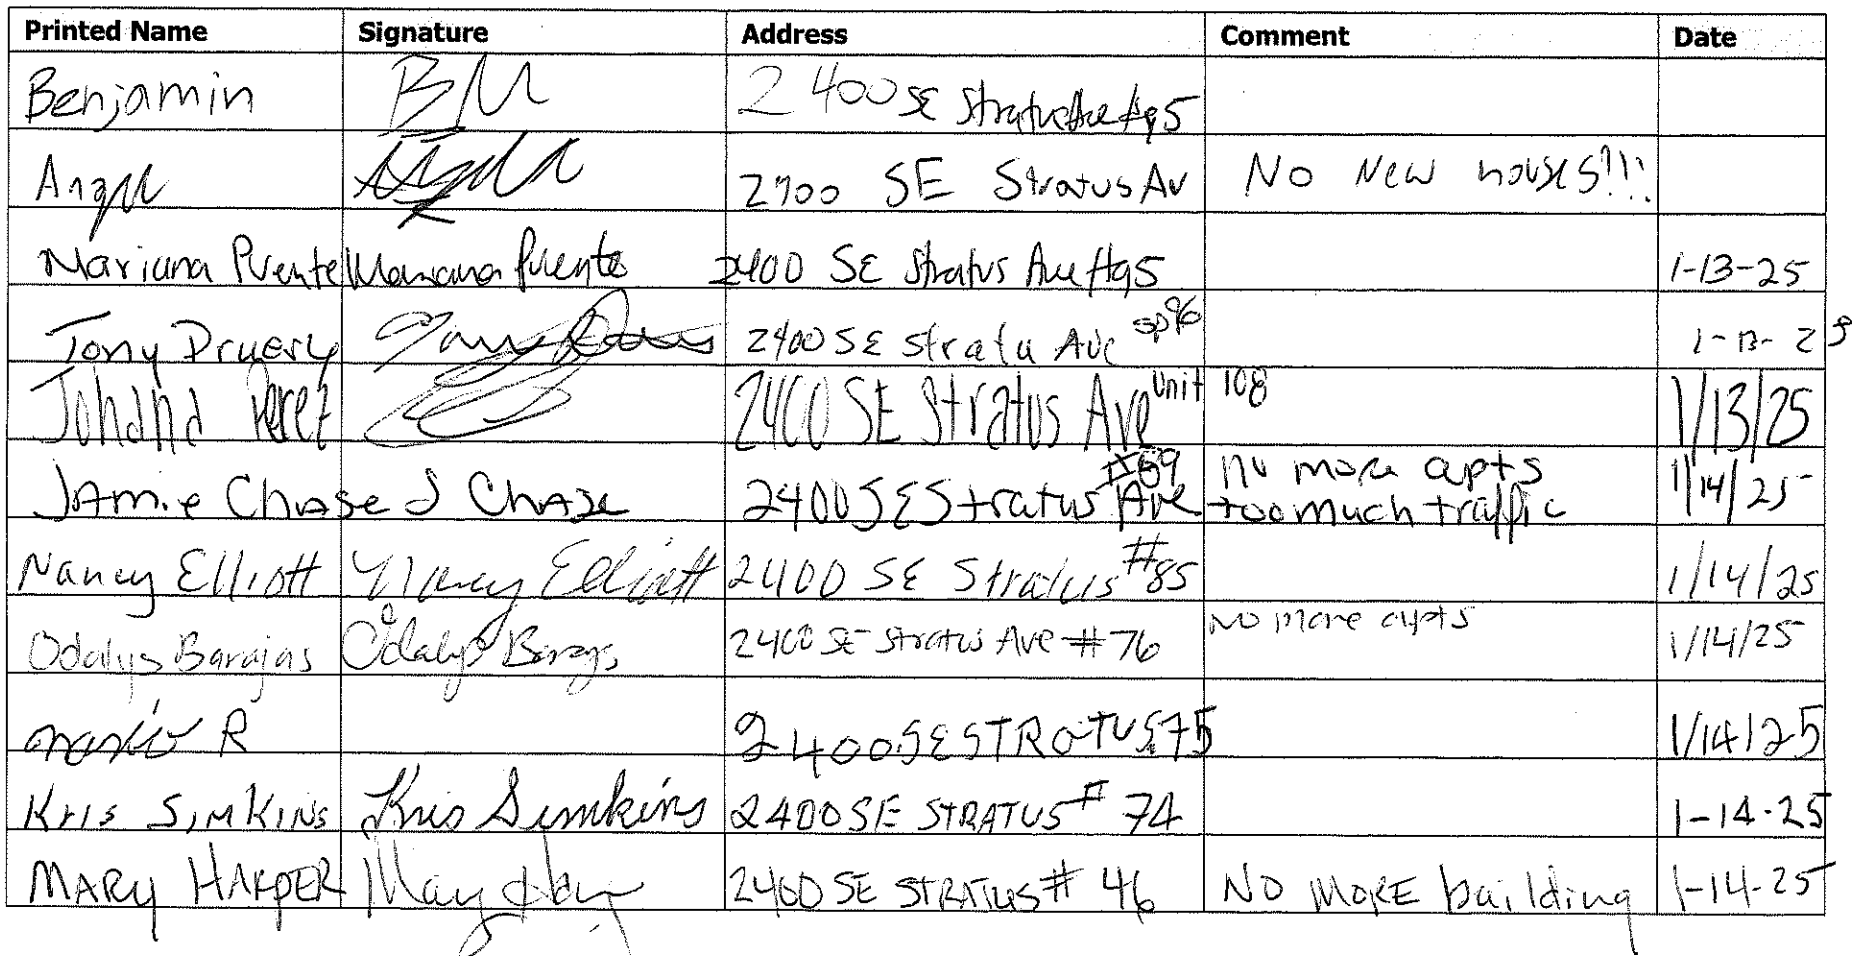 Printed Name Signature Address Comment Date
Benjamin BM 2400 SE Stratus Ave #95
Angel 2700 SE Stratus Av No New houses!!!
Mariana Puente Mariana Puente 2400 SE Stratus Ave #95 1-13-25
Tony Pruery 2400 SE Stratu Ave sp96 1-13-25
Johana Perez 2400 SE Stratus Ave Unit 108 1/13/25
Jamie Chase J Chase 2400 SE Stratus Ave #69 no more apts too much traffic 1/14/25
Nancy Elliott Nancy Elliott 2400 SE Stratus #85 1/14/25
Odalys Barajas Odalys Barajas 2400 SE Stratus Ave #76 No more apts 1/14/25
R 2400 SE STRATUS 75 1/14/25
Kris SimKins Kris Simkins 2400 SE STRATUS # 74 1-14-25
MARY HARPER 2400 SE STRATUS # 46 NO MORE building 1-14-25